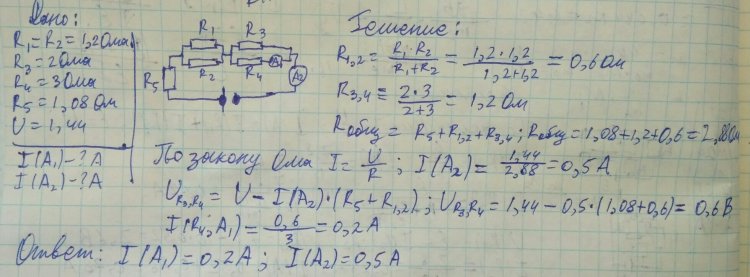 Дано:
R₁=R₂=1,2Ома
R₃=2Ома
R₄=3Ома
R₅=1,08Ом
U=1,44
I(A₁)-?A
I(A₂)-?A
R₁
R₃
R₂
R₄
A₁
A₂
R₅
Решение:
R₁,₂ = R₁·R₂ / R₁+R₂ = 1,2·1,2 / 1,2+1,2 = 0,6Ом
R₃,₄ = 2·3 / 2+3 = 1,2Ом
Rобщ = R₅+R₁,₂+R₃,₄; Rобщ = 1,08+1,2+0,6=2,88Ом
По закону Ома I = U / R ; I(A₂) = 1,44 / 2,88 = 0,5А
U R₃,R₄ = U - I(A₂)·(R₅+R₁,₂); U R₃,R₄ = 1,44-0,5·(1,08+0,6)=0,6В
I(R₄;A₁) = 0,6 / 3 = 0,2А
Ответ: I(A₁)=0,2А; I(A₂)=0,5А